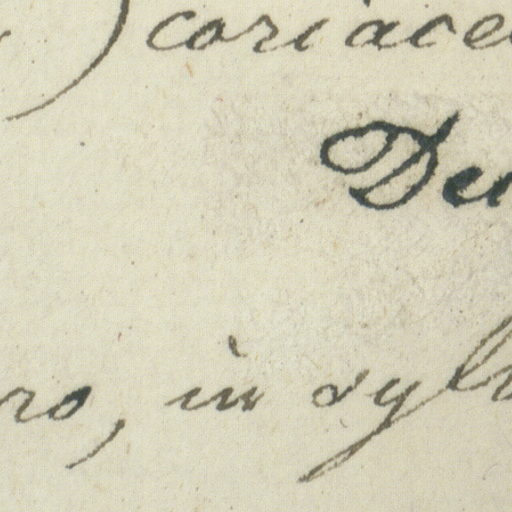 ) coriace
De
ro, in sylv